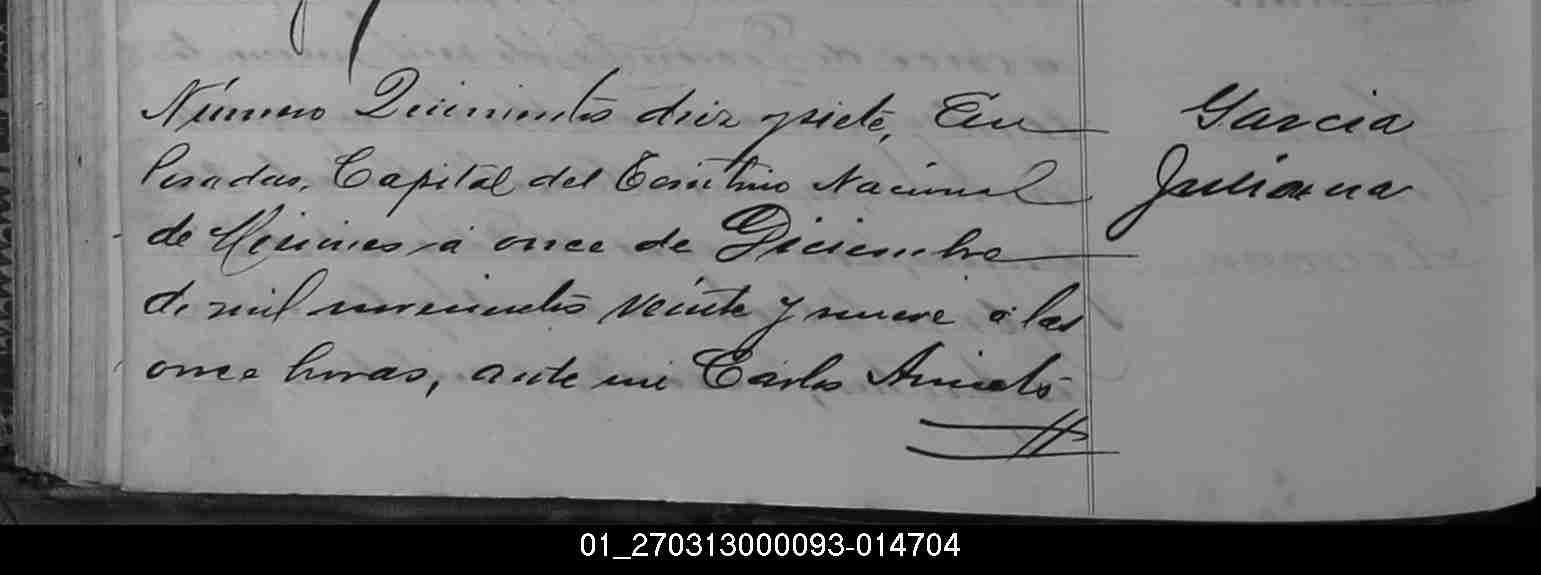 Número Quinientos diez y siete, En
Posadas, Capital del Territorio Nacional
de Misiones á once de Diciembre
de mil novecientos veinte y nueve á las
once horas, ante mi Carlos
Garcia
Juliana
01_270313000093-014704